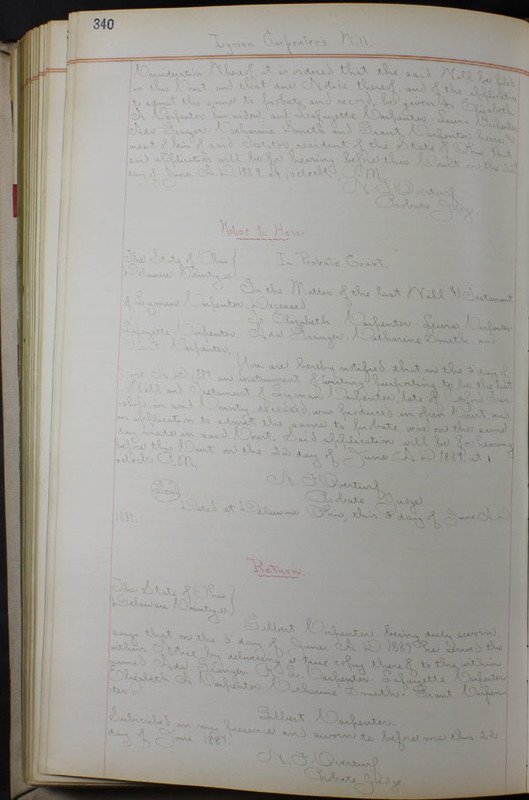 340
Lyman Carpenter's Will.
Consideration Whereof it is ordered that the said Will be filed
in this Court, and that due Notice thereof, and of the application
to admit the same to probate and record, be given to Elizabeth
A Carpenter his widow and Lafayette Carpenter Lewis Carpenter
Ada Granger Catharine Smith and Grant Carpenter heirs &
next of kin of said testator, resident of the State of Ohio that
said application will be for hearing before this Court on the 22
day of June A.D. 1889 at 1 o'clock P.M.
N. F. Overturf
Probate Judge
Notice to Heirs.
The State of Ohio }
Delaware County ss } In Probate Court.
In the Matter of the last Will & Testament
of Lyman Carpenter, Deceased.
To Elizabeth Carpenter Lewis Carpenter
Lafayette Carpenter Ada Granger Catharine Smith and
Grant Carpenter,
You are hereby notified that on the 3 day of
June A.D. 1889 an instrument of writing purporting to be the last
Will and Testament of Lyman Carpenter late of Town
ship in said County deceased, was produced in open Court and
an application to admit the same to probate was on the same
day made in said Court. Said application will be for hearing
before this Court on the 22 day of June A.D 1889, at 1
o'clock P.M.
N. F. Overturf
Seal Probate Judge
Dated at Delaware Ohio, this 3 day of June A.D
1889.
Return.
The State of Ohio }
Delaware County ss }
Gilbert Carpenter being duly sworn,
says that on the 3 day of June A.D 1889 he served the
within Notice by delivering a true copy thereof to the within
named Ada Granger Carpenter Lafayette Carpenter
Elizabeth A Carpenter Catharine Smith Grant Carpen
ter
Gilbert Carpenter.
Subscribed in my presence and sworn to before me this 22
day of June 1889
N. F. Overturf
Probate Judge